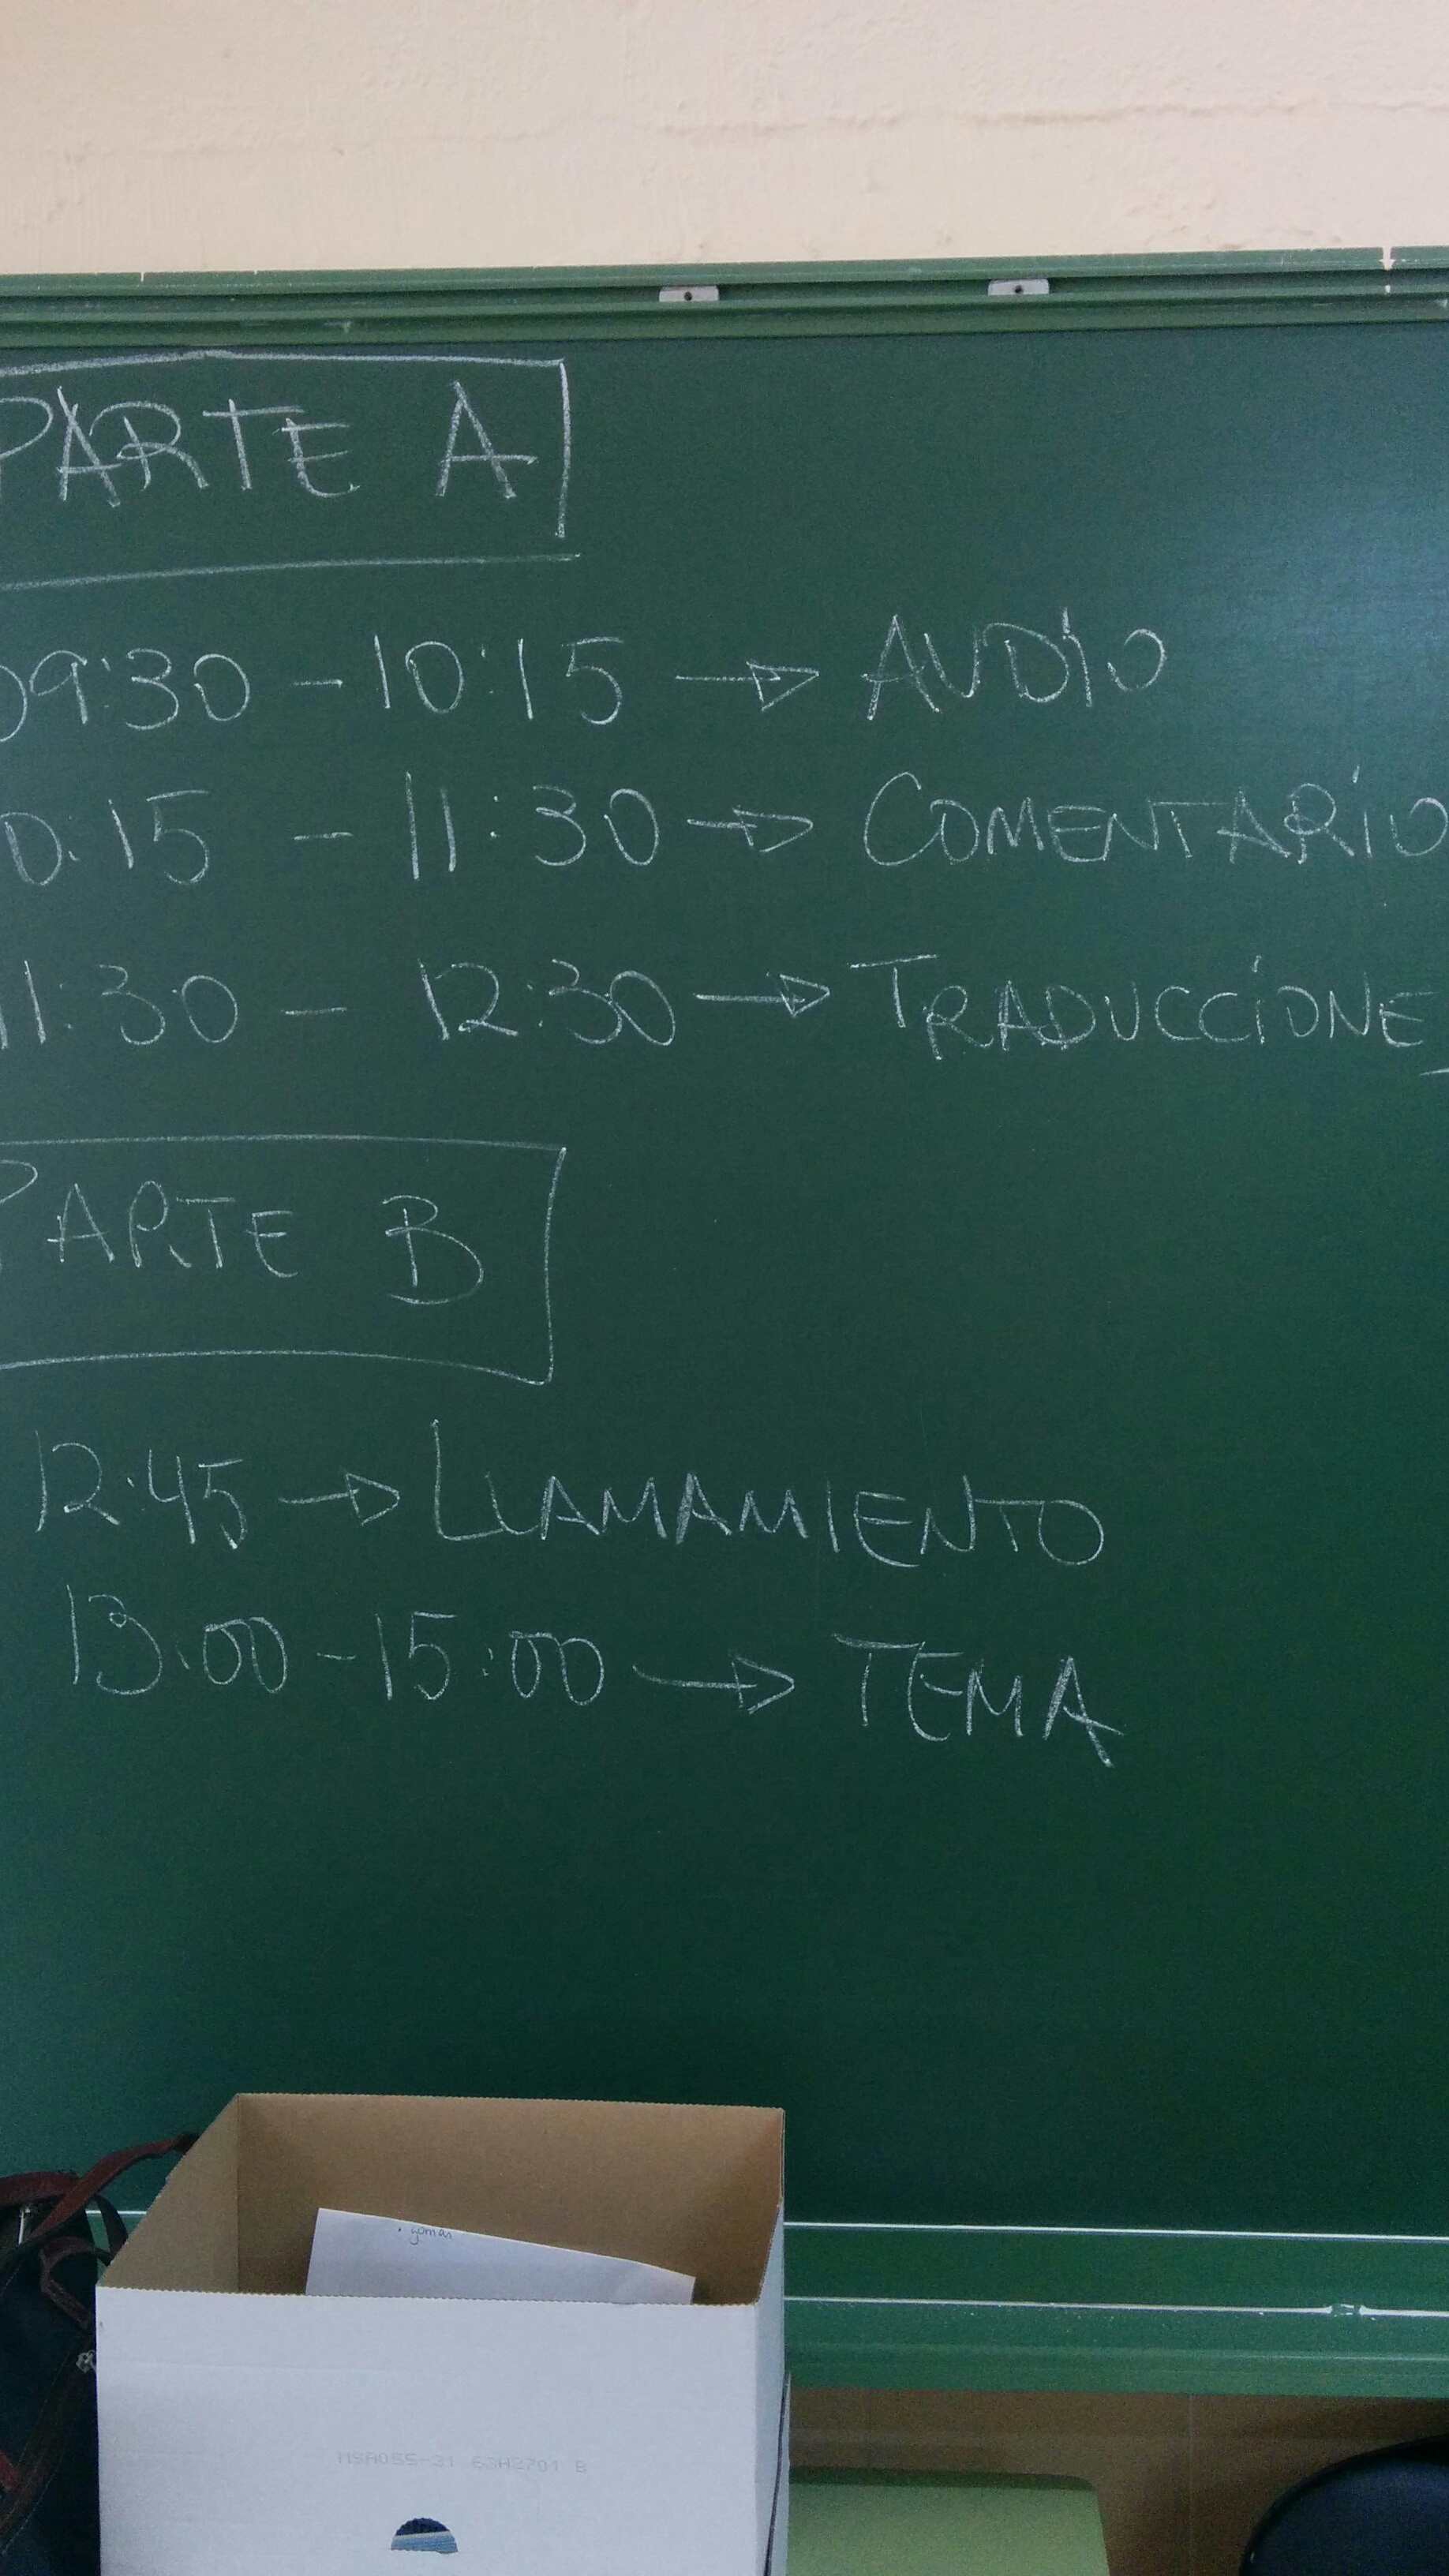 PARTE A
09:30 - 10:15 → AUDIO
0:15 - 11:30 → COMENTARIO
11:30 - 12:30 → TRADUCCIONE
PARTE B
12:45 → LLAMAMIENTO
13:00 - 15:00 → TEMA
MSA055-31 63H2701 B